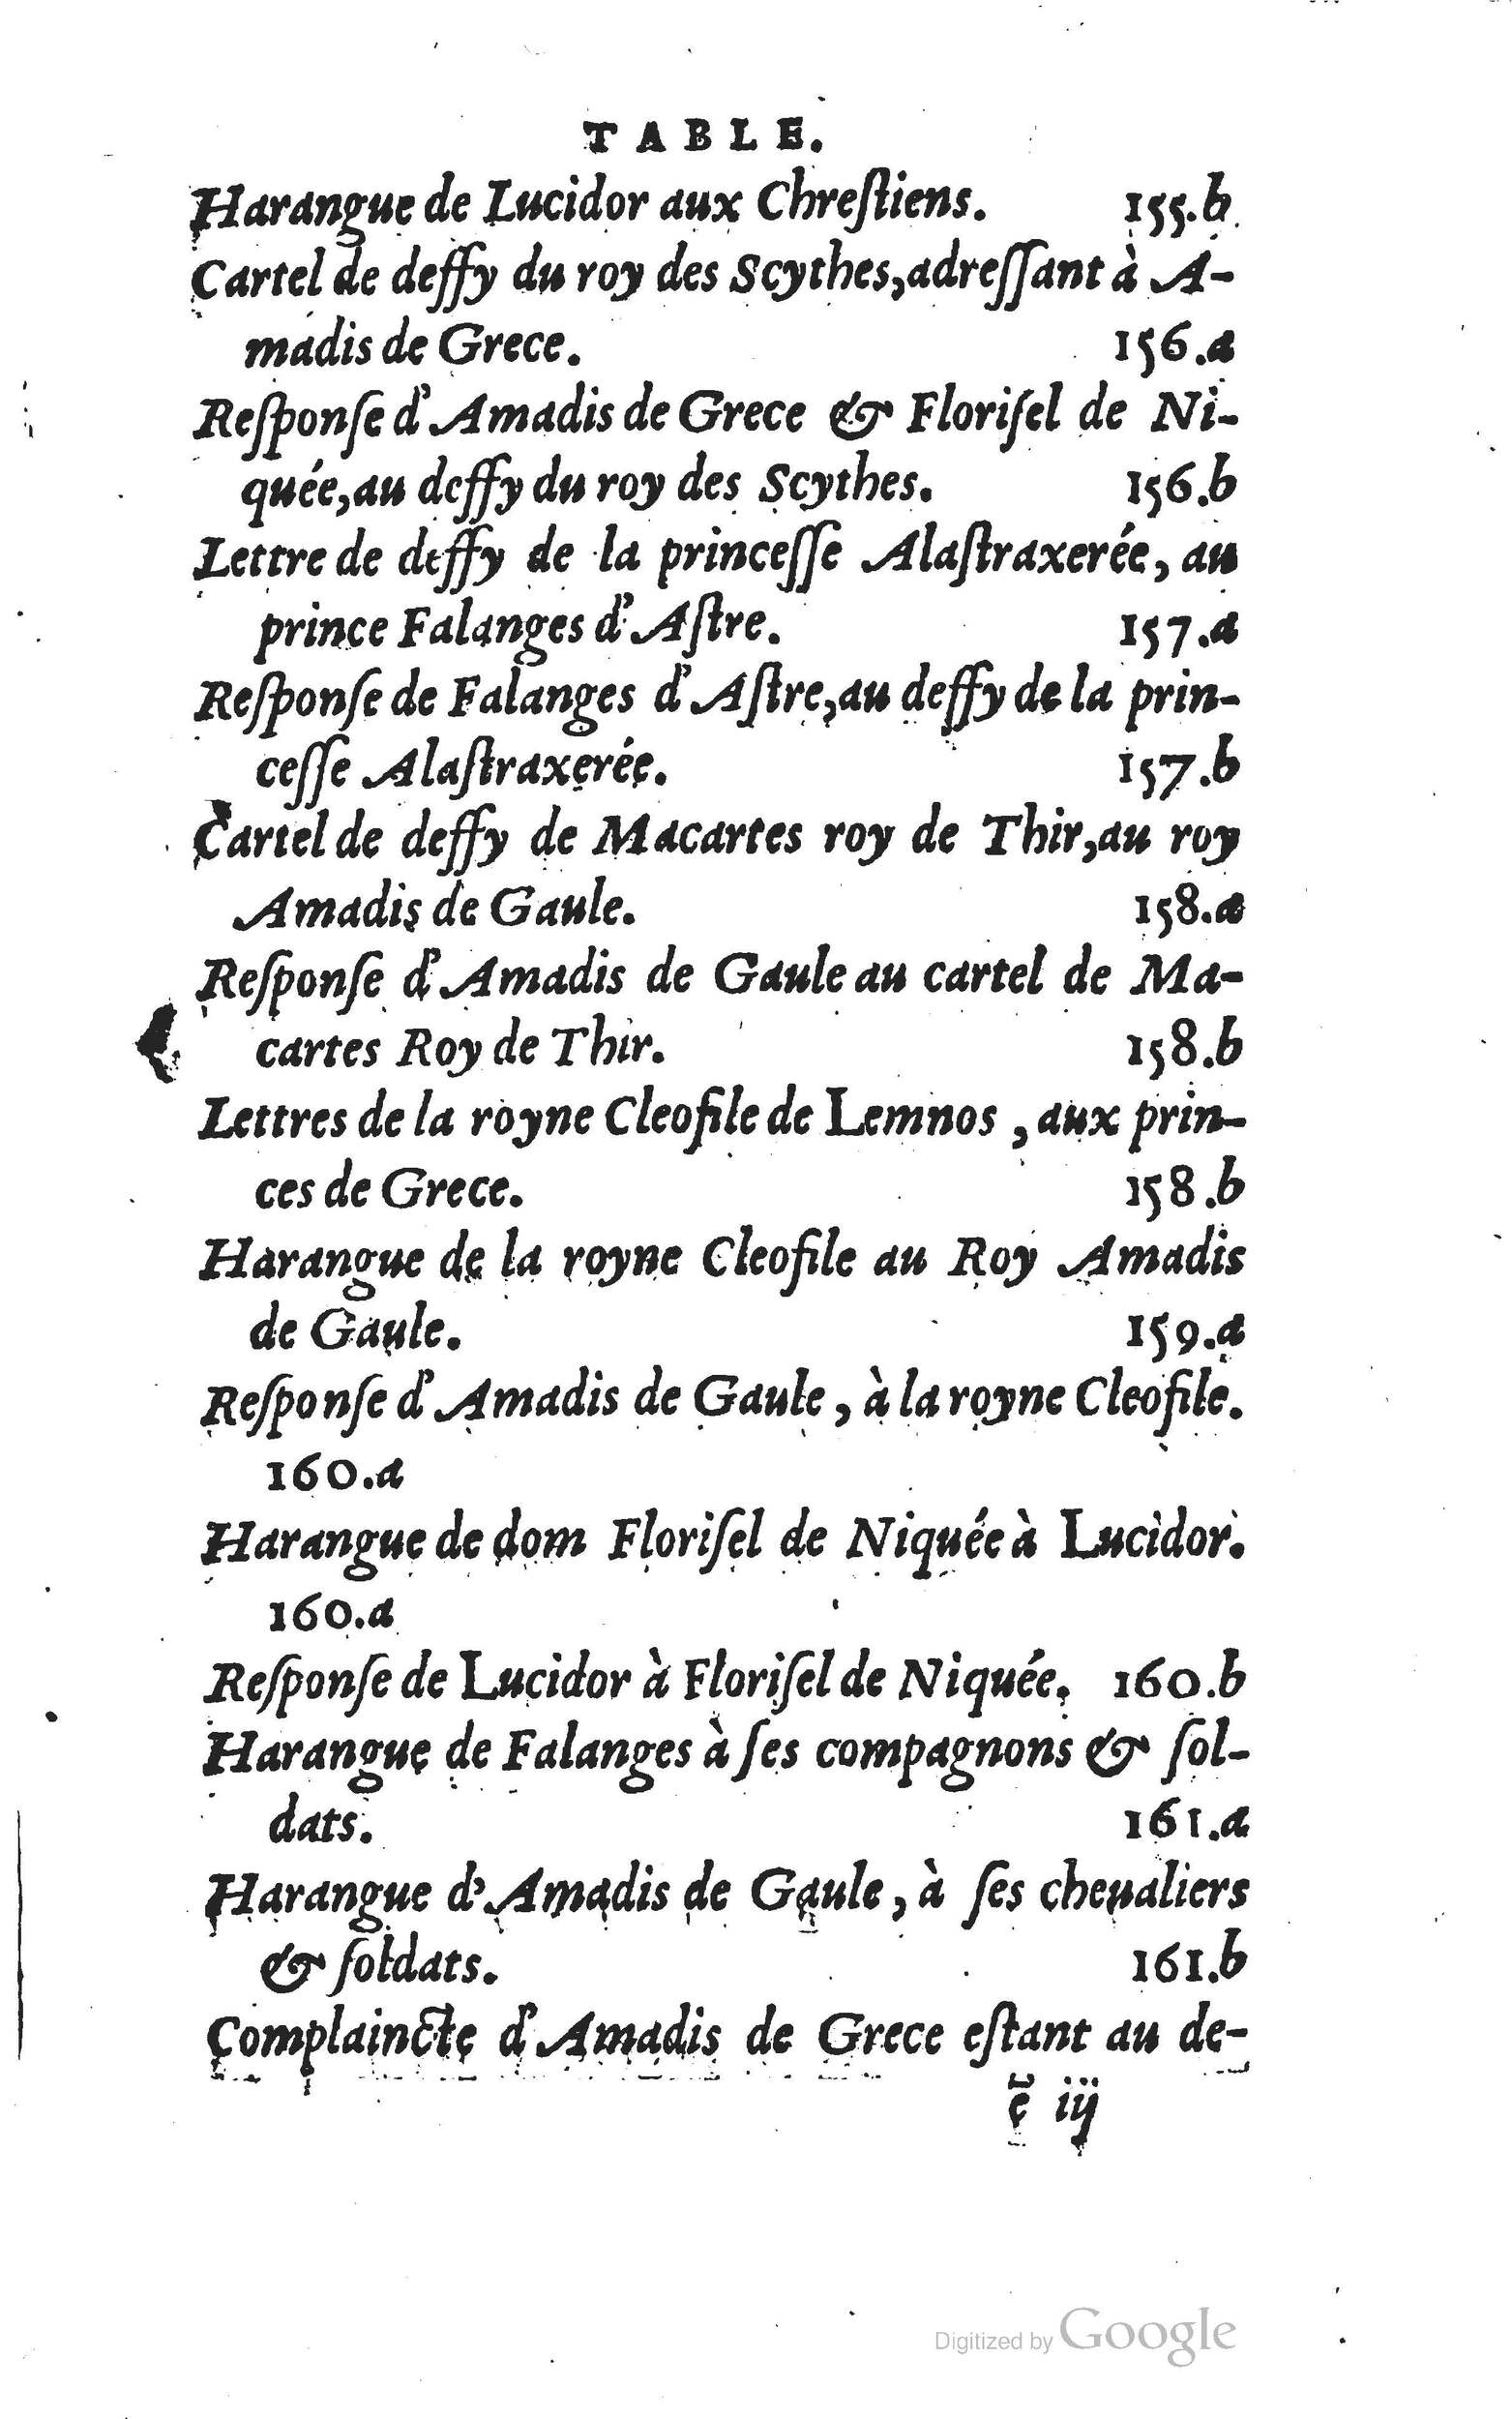 TABLE.
Harangue de Lucidor aux Chreſtiens. 155.b
Cartel de deffy du roy des Scythes,adreſſant à A-
madis de Grece. 156.a
Reſponſe d'Amadis de Grece & Floriſel de Ni-
quée,au deffy du roy des Scythes. 156.b
Lettre de deffy de la princeſſe Alaſtraxerée, au
prince Falanges d'Aſtre. 157.a
Reſponſe de Falanges d'Aſtre,au deffy de la prin-
ceſſe Alaſtraxerée. 157.b
Cartel de deffy de Macartes roy de Thir,au roy
Amadis de Gaule. 158.a
Reſponſe d'Amadis de Gaule au cartel de Ma-
cartes Roy de Thir. 158.b
Lettres de la royne Cleofile de Lemnos , aux prin-
ces de Grece. 158.b
Harangue de la royne Cleofile au Roy Amadis
de Gaule. 159.a
Reſponſe d'Amadis de Gaule , à la royne Cleofile.
160.a
Harangue de dom Floriſel de Niquée à Lucidor.
160.a
Reſponſe de Lucidor à Floriſel de Niquée. 160.b
Harangue de Falanges à ſes compagnons & ſol-
dats. 161.a
Harangue d'Amadis de Gaule , à ſes cheualiers
& ſoldats. 161.b
Complaincte d'Amadis de Grece eſtant au de-
ẽ iij
Digitized by Google